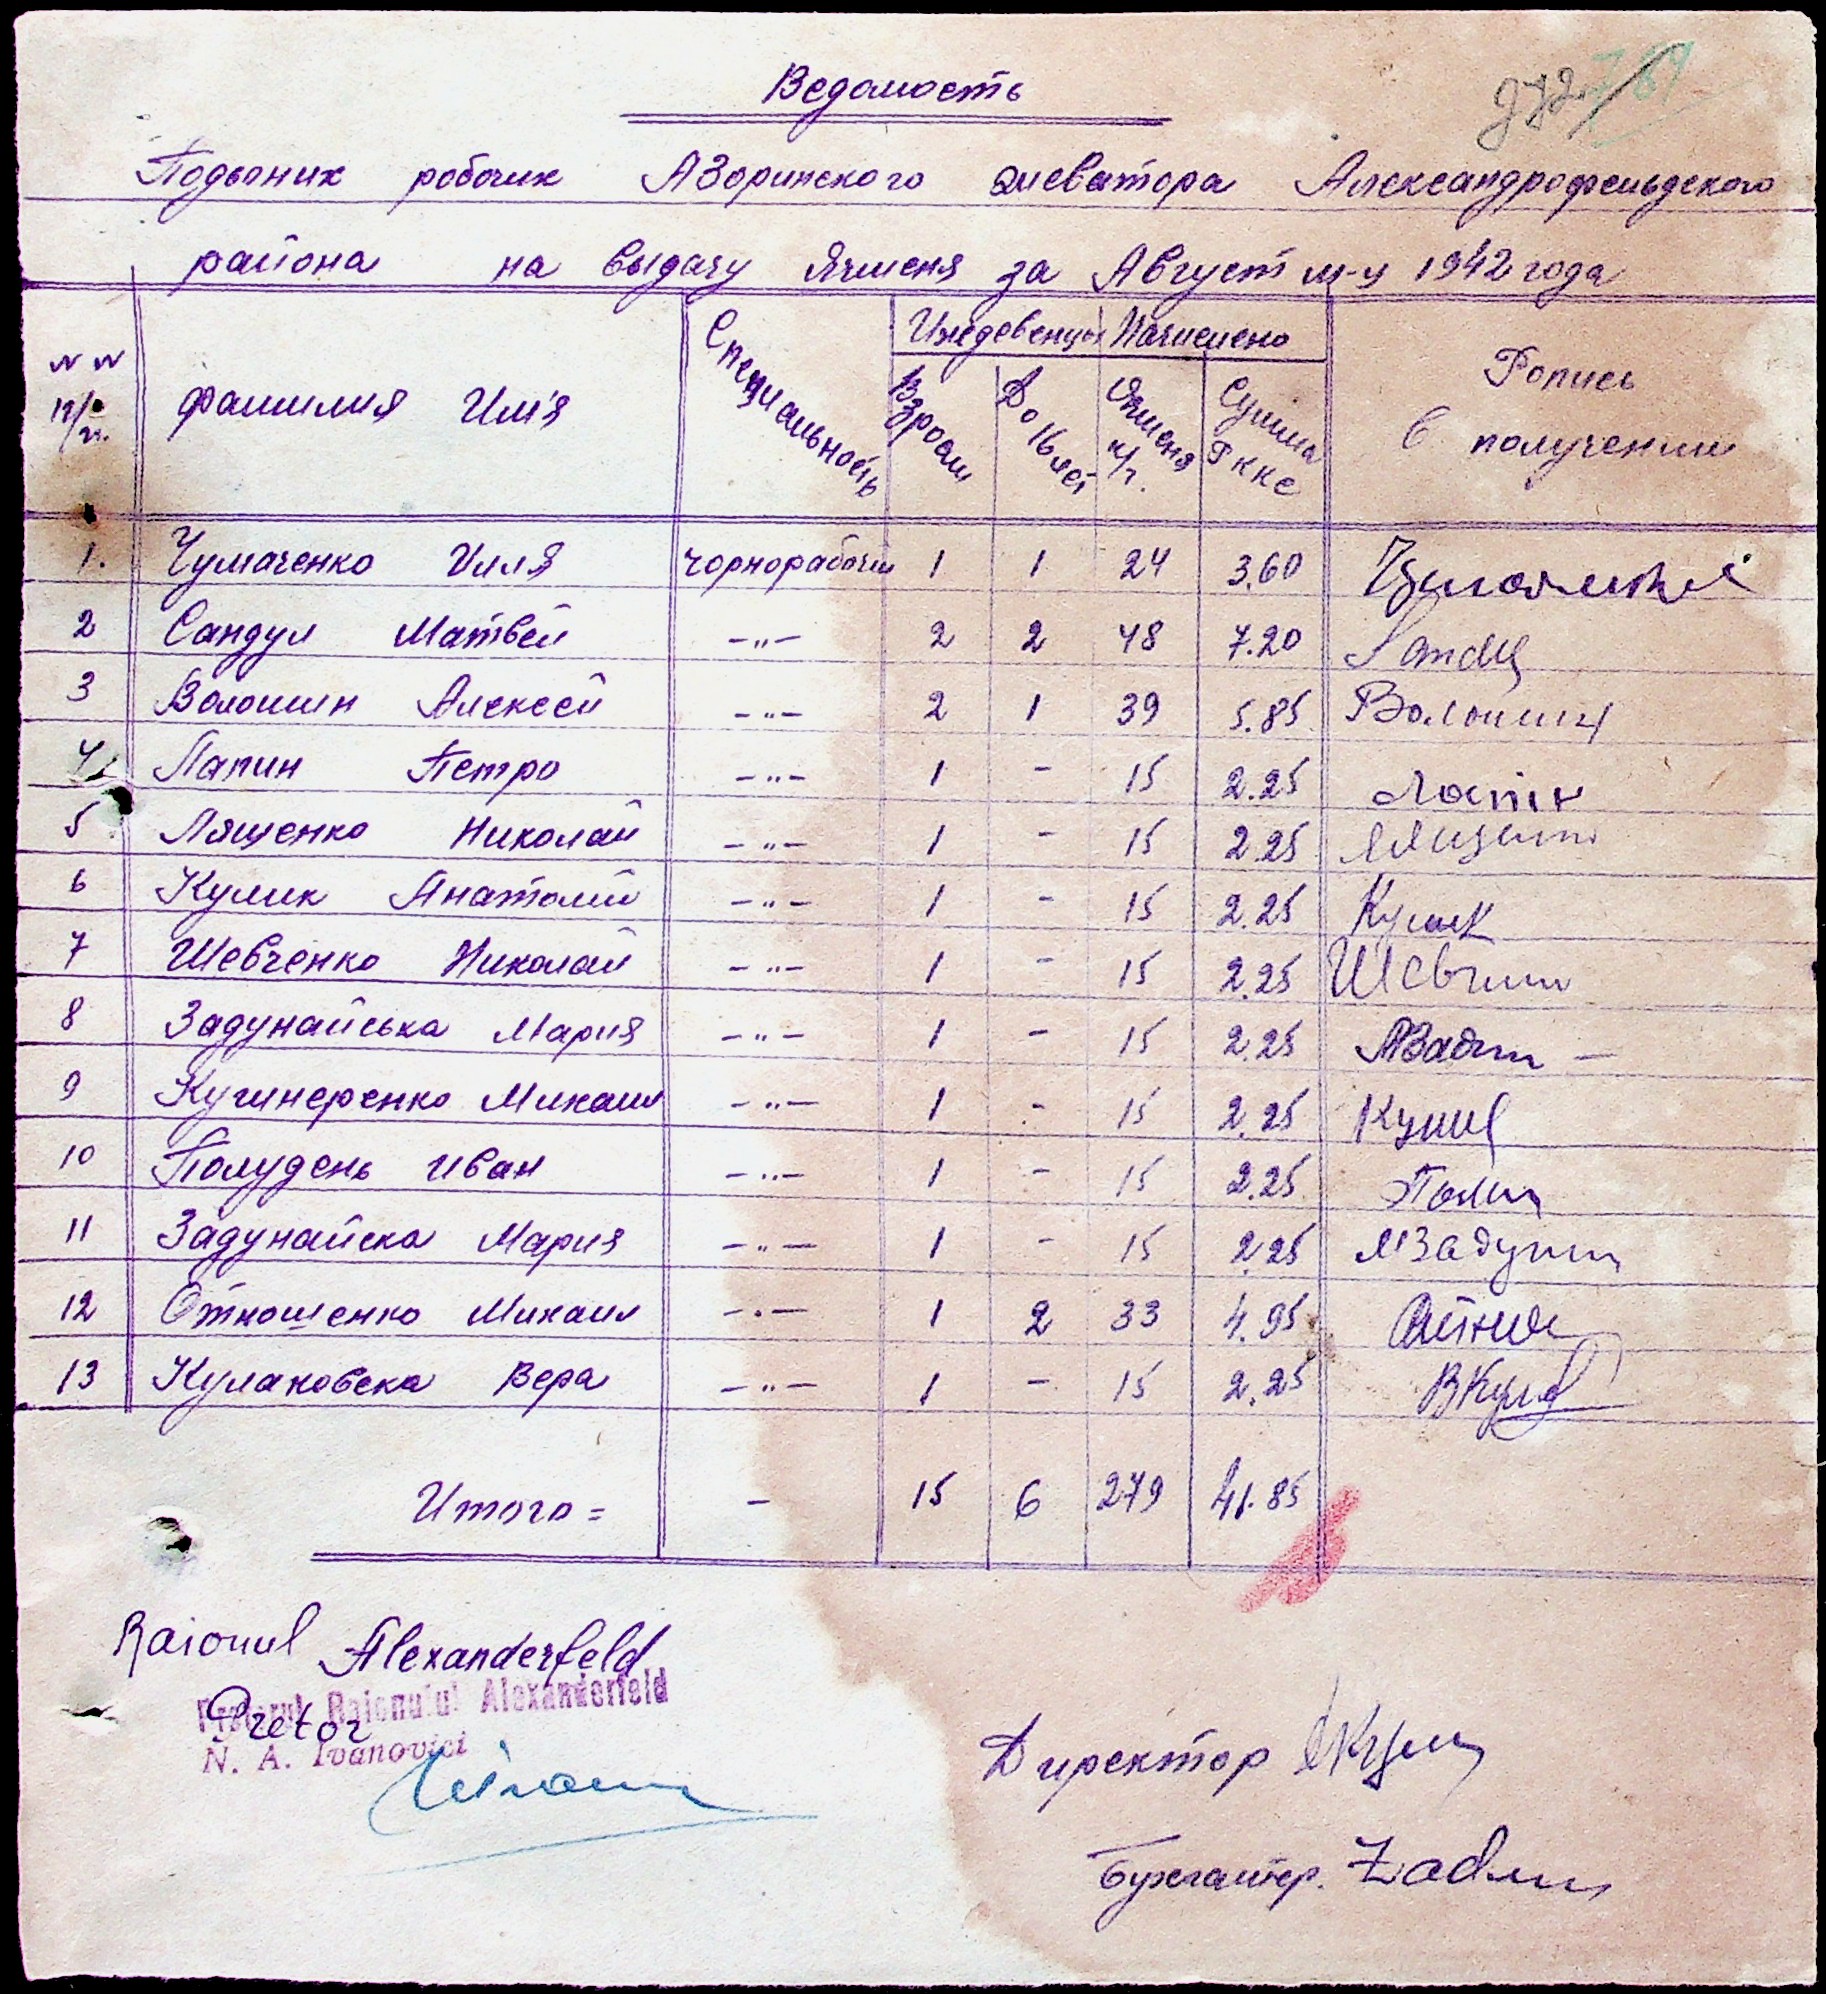 272 764
Ведомость
Подьоних робочих Азоринского елеватора Александрофельдского
района на выдачу Ячменя за Август м-ц 1942 года
№ № п/п Фамилия Им'я Специальность Ижедевенцы Начислено Ропись в получении
Взросл До 16 лет Ячменя к/г. Сумма Рккс
1. Чумаченко Илля чорнорабочи 1 1 24 3.60
2 Сандул Матвей -"- 2 2 48 7.20 Sandul
3 Волошин Алексей -"- 2 1 39 5.85 Волошин
4 Лапин Петро -"- 1 - 15 2.25 Лапін
5 Лященко Николай -"- 1 - 15 2.25
6 Кулик Анатолий -"- 1 - 15 2.25 Кулик
7 Шевченко Николай -"- 1 - 15 2.25
8 Задунайська Мария -"- 1 - 15 2.25
9 Кучинеренко Михаил -"- 1 - 15 2.25
10 Полудень Иван -"- 1 - 15 2.25
11 Задунайска Мария -"- 1 - 15 2.25
12 Отношенко Михаил -"- 1 2 33 4.95
13 Кулановска Вера -"- 1 - 15 2.25
Итого = - 15 6 279 41.85
Raionul Alexanderfeld
Pretorul Raionului Alexanderfeld
Pretor
N. A. Ivanovici
Директор
Бухгалтер.